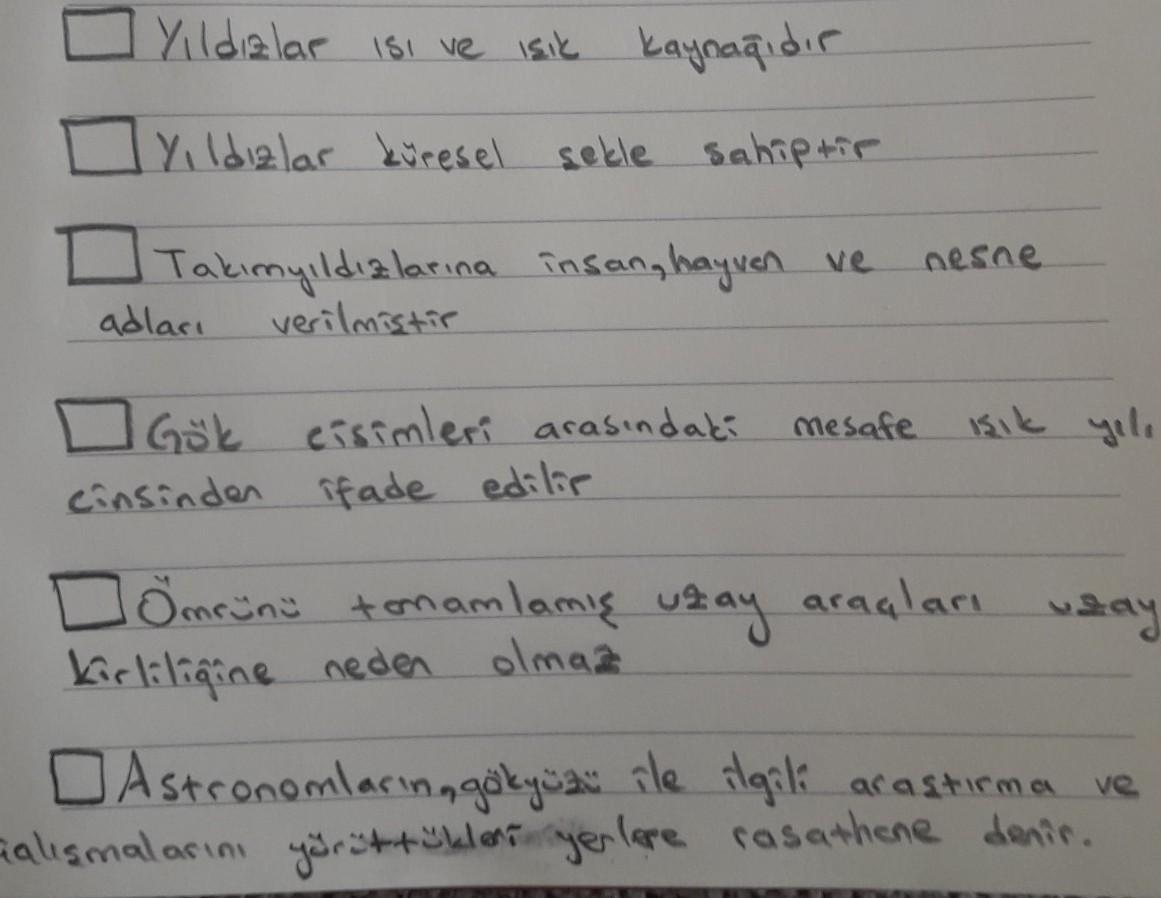 Yıldızlar ısı ve ışık kaynağıdır
Yıldızlar küresel şekle sahiptir
Takımyıldızlarına insan, hayvan ve nesne
adları verilmiştir
Gök cisimleri arasındaki mesafe ışık yılı
cinsinden ifade edilir
Ömrünü tamamlamış uzay araçları uzay
kirliliğine neden olmaz
Astronomların, gökyüzü ile ilgili araştırma ve
çalışmalarını yürüttükleri yerlere rasathane denir.